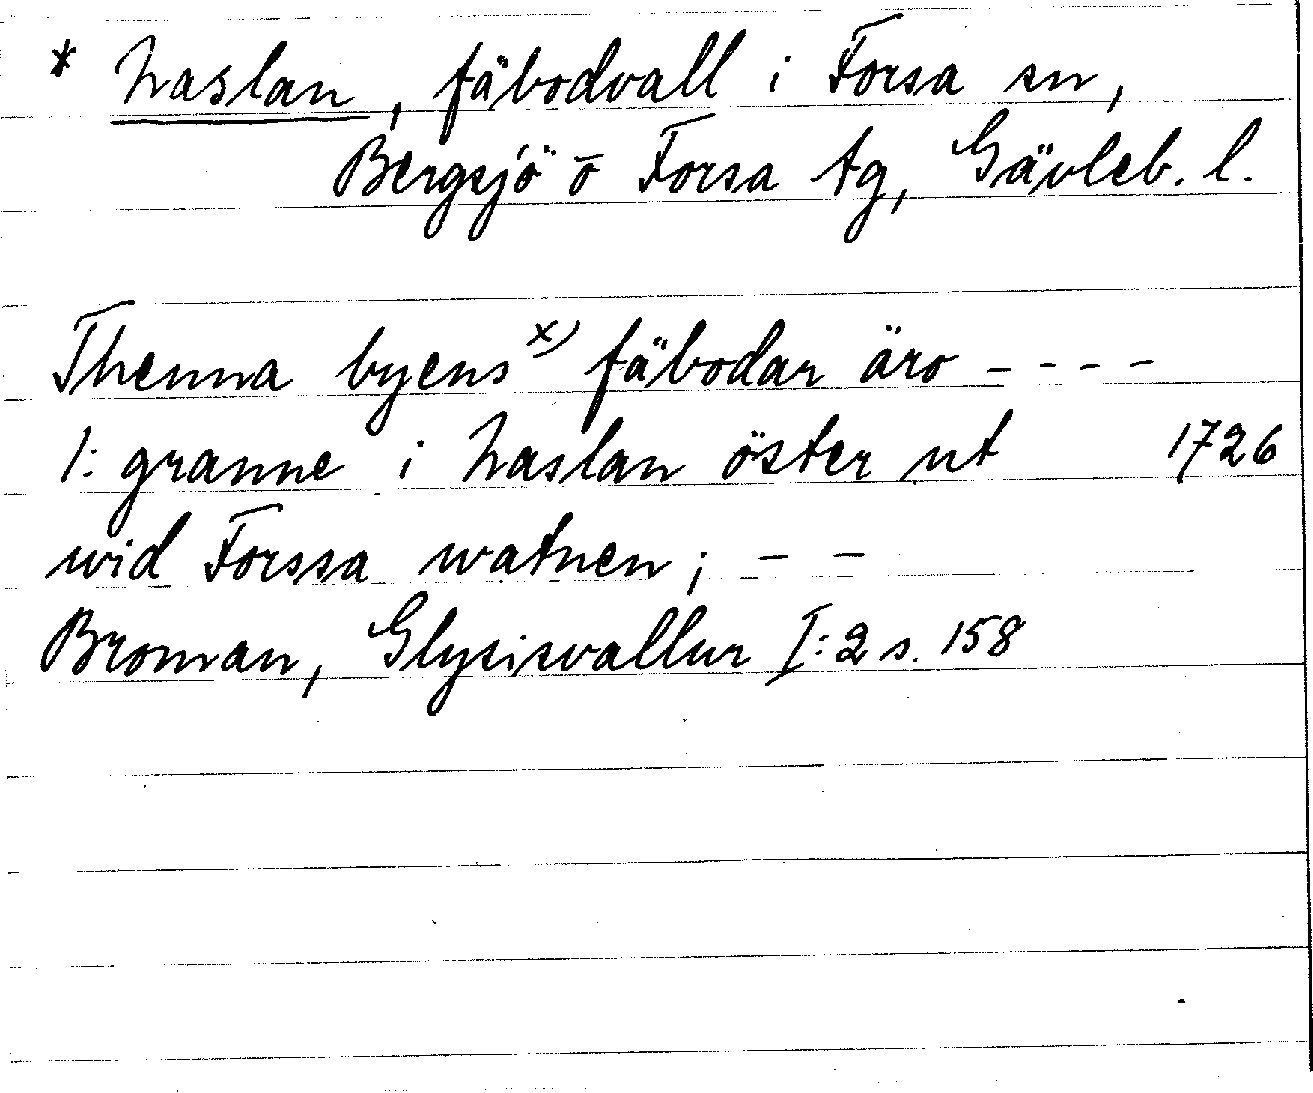 * Haslan, fäbodvall i Forsa sn,
Bergsjö o Forsa tg, Gävleb. l.
Thenna byens x) fäbodar äro - - - -
1: granne i Haslan öster ut 1726
wid Forssa watnen; - -
Broman, Glysisvallur I:2 s. 158